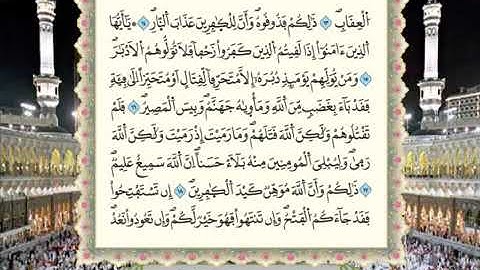 اَ۬لْعِقَابِۖ ١٣ ذَٰلِكُمْ فَذُوقُوهُ وَأَنَّ لِلْكَٰفِرِينَ عَذَابَ اَ۬لنَّارِۖ ١٤ يَٰٓأَيُّهَا
اَ۬لذِينَ ءَامَنُوٓاْ إِذَا لَقِيتُمُ اُ۬لذِينَ كَفَرُواْ زَحْفاٗ فَلَا تُوَلُّوهُمُ اُ۬لَادْبَٰرَۖ
١٥ وَمَنْ يُّوَلِّهِمْ يَوْمَئِذٖ دُبُرَهُۥٓ إِلَّا مُتَحَرِّفاٗ لِّقِتَالٍ اَوْ مُتَحَيِّزاً اِلَىٰ فِئَةٖ
فَقَدْ بَآءَ بِغَضَبٖ مِّنَ اَ۬للَّهِ وَمَأْوَيٰهُ جَهَنَّمُ وَبِيسَ اَ۬لْمَصِيرُۖ ١٦ فَلَمْ
تَقْتُلُوهُمْ وَلَٰكِنَّ اَ۬للَّهَ قَتَلَهُمْۖ وَمَا رَمَيْتَ إِذْ رَمَيْتَ وَلَٰكِنَّ اَ۬للَّهَ
رَمَىٰۖ وَلِيُبْلِيَ اَ۬لْمُومِنِينَ مِنْهُ بَلَآءً حَسَناًۖ اِنَّ اَ۬للَّهَ سَمِيعٌ عَلِيمٞۖ
١٧ ذَٰلِكُمْ وَأَنَّ اَ۬للَّهَ مُوَهِّنٞ كَيْدَ اَ۬لْكَٰفِرِينَۖ ١٨ إِن تَسْتَفْتِحُواْ
فَقَدْ جَآءَكُمُ اُ۬لْفَتْحُۖ وَإِن تَنتَهُواْ فَهُوَ خَيْرٞ لَّكُمْۖ وَإِن تَعُودُواْ نَعُدْۖ